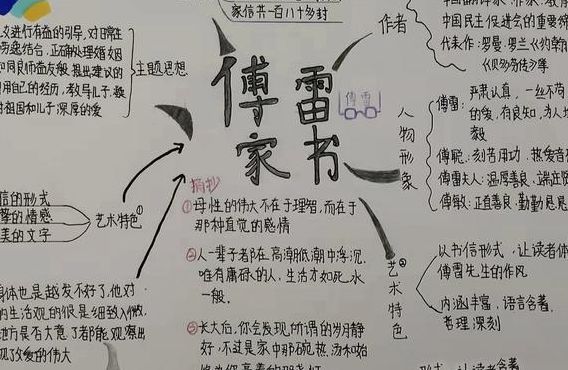 家信共一百八十多封
作者
中国民主促进会的重要缔
代表作：罗曼·罗兰《约翰
《贝多芬传》等
进行有益的引导，对日常生
结合，正确处理婚姻
如同良师益友般，提出建议的
用自己的经历，教导儿子，教
对祖国和儿子深厚的爱
主题思想
傅雷
家书
傅雷
人物形象
傅雷：严肃认真，一丝不苟
的爱，有良知，为人坦
毅
傅聪：刻苦用功，热爱音
傅雷夫人：温厚善良，端庄贤
傅敏：正直善良，勤勤恳恳
信的形式
的情感
美的文字
艺术特色①
摘抄
①母性的伟大不在于理智，而在于
那种直觉的感情
②人一辈子都在高潮低潮中浮沉，
唯有庸碌的人，生活才如死水
一般。
③长大后，你会发现所谓的岁月静
好，不过是家中那碗热汤和始
艺术特色②
以书信形式，让读者体
傅雷先生的作风
内涵丰富，语言含蓄，
哲理深刻
身体也是越发不好了，他对
的生活观的很是细致入微，
地方是否大意了都能观察出
现了父爱的伟大